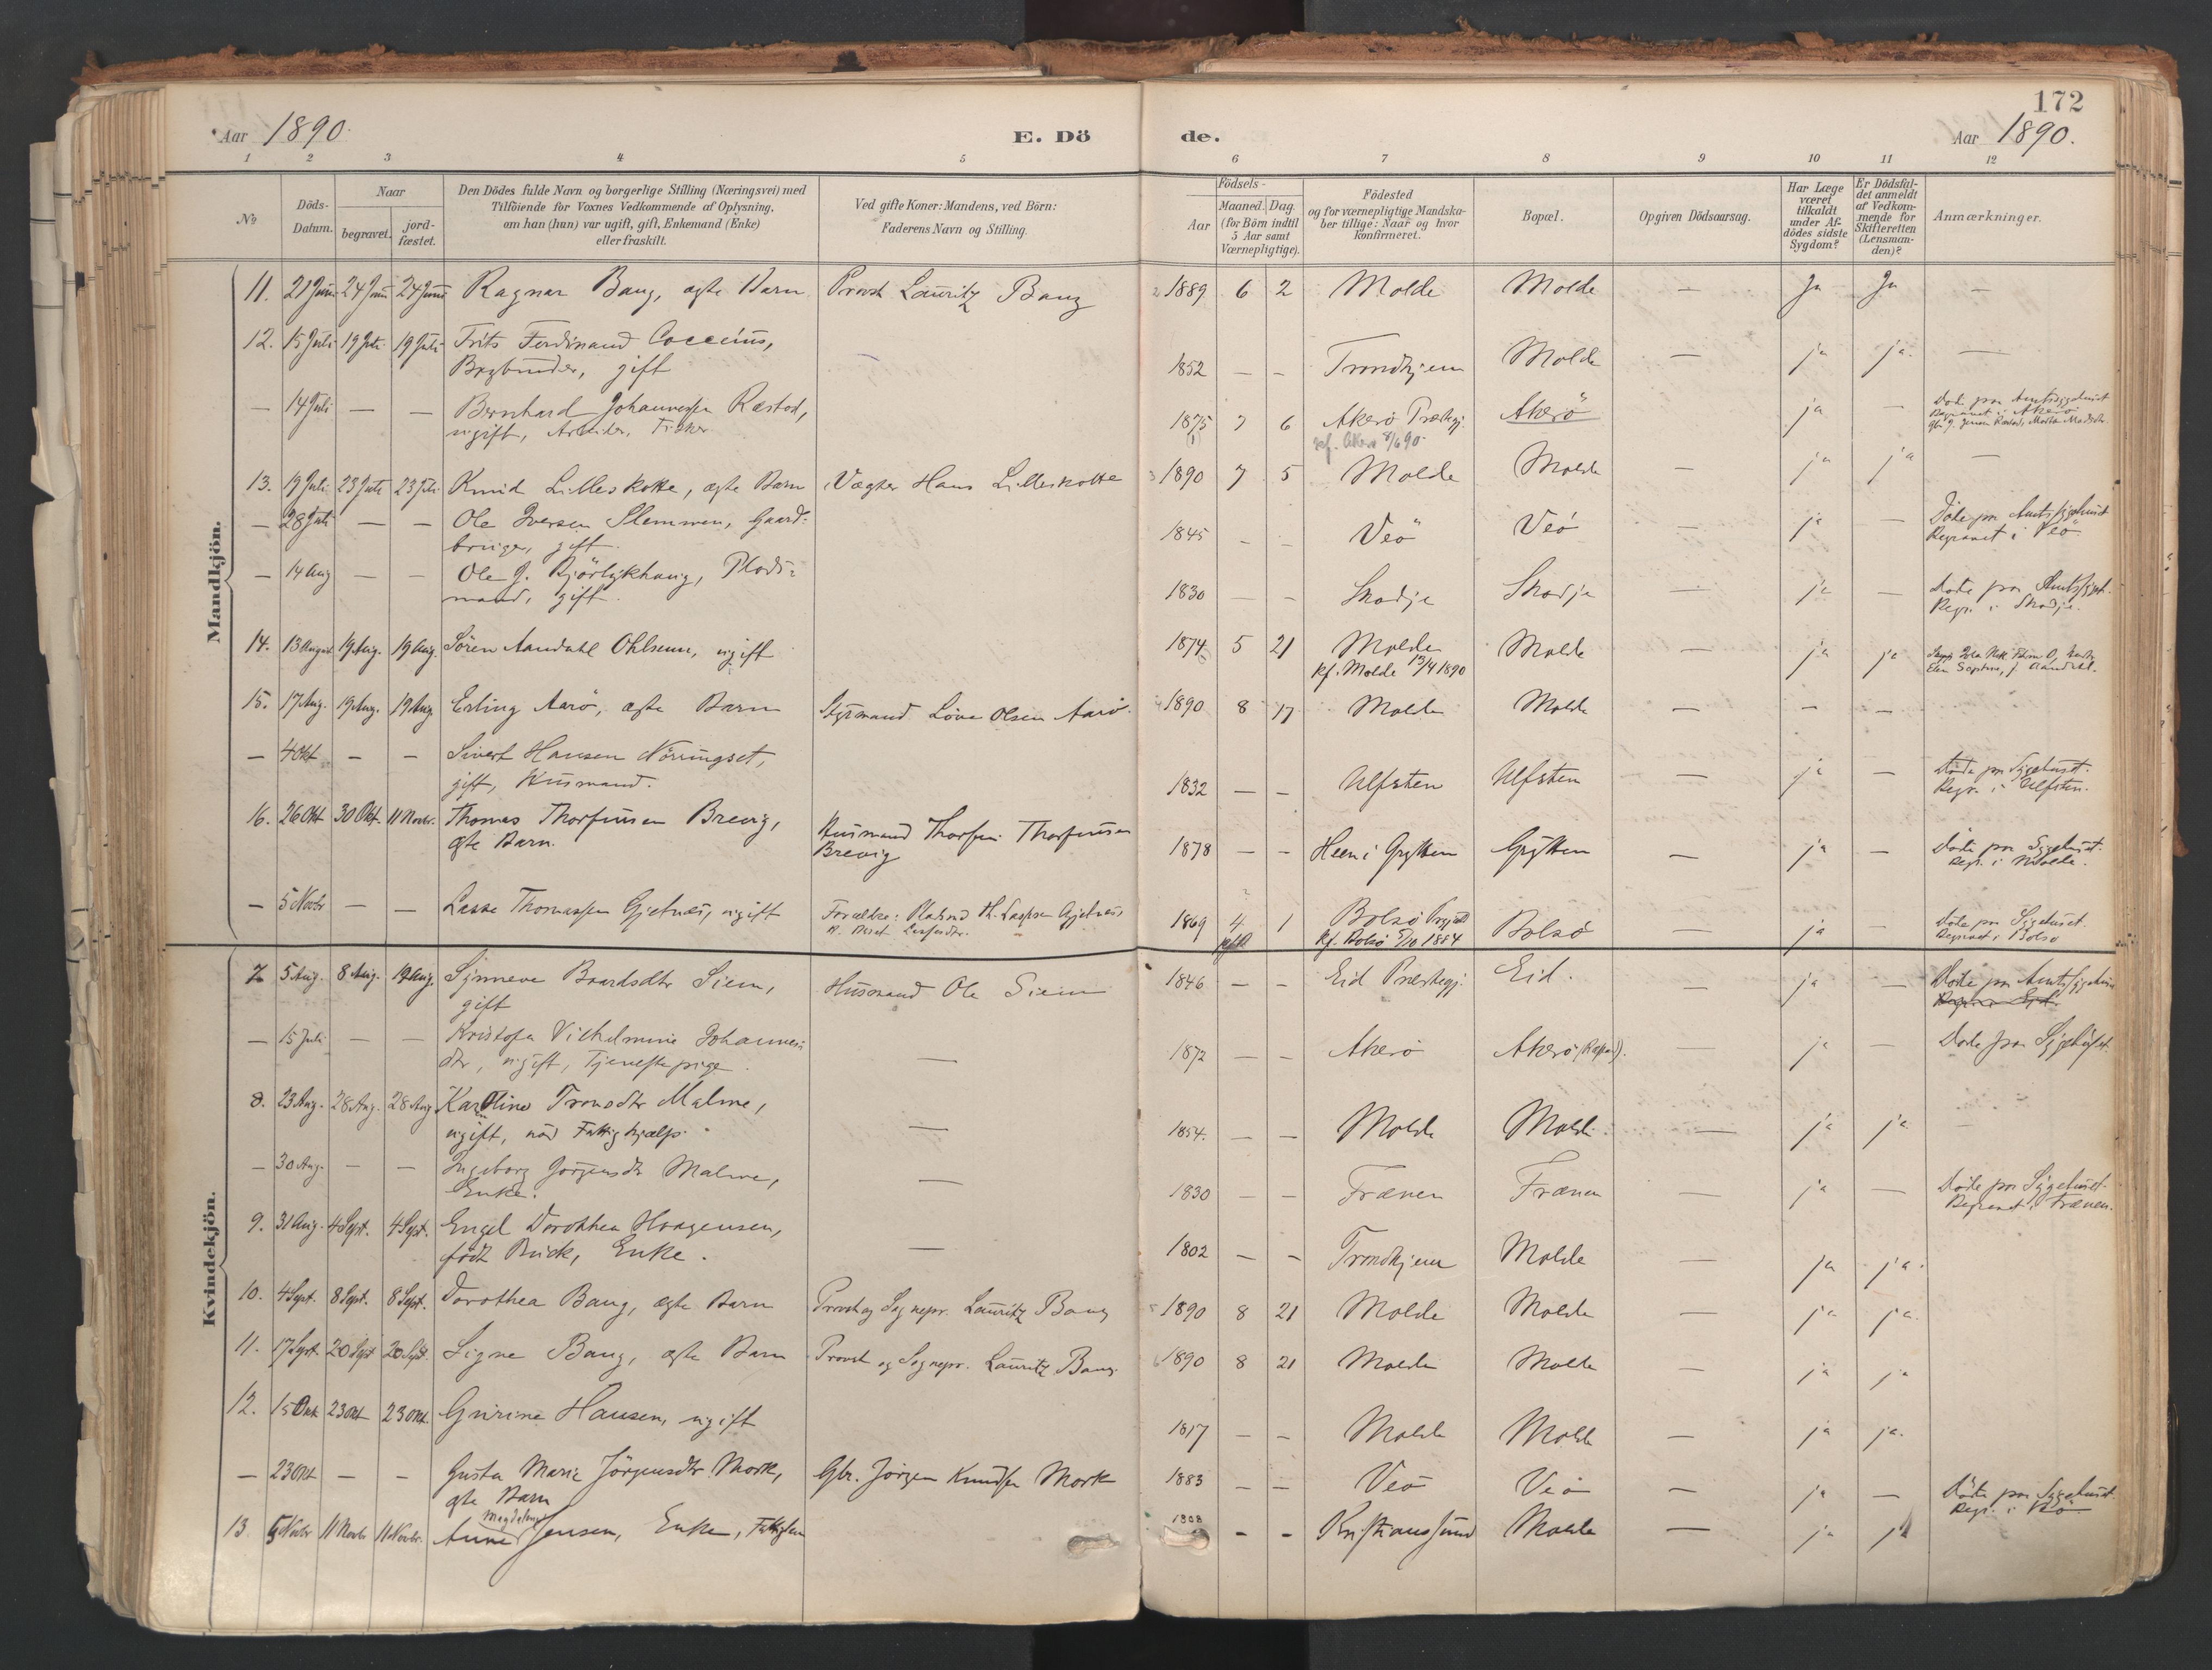 172
Aar 1890. E. Dö de. Aar 1890.
1 2 3 4 5 6 7 8 9 10 11 12
No
Döds-Datum.
Naar
begravet.
jord-fæstet.
Den Dödes fulde Navn og borgerlige Stilling (Næringsvei) med
Tilföiende for Voxnes Vedkommende af Oplysning,
om han (hun) var ugift, gift, Enkemand (Enke)
eller fraskilt.
Ved gifte Koner: Mandens, ved Börn:
Faderens Navn og Stilling.
Födsels-
Aar
Maaned. Dag.
(for Börn indtil
5 Aar samt
Værnepligtige).
Födested
og for værnepligtige Mandska-
ber tillige: Naar og hvor
konfirmeret.
Bopæl.
Opgiven Dödsaarsag.
Har Læge
været
tilkaldt
under Af-
dödes sidste
Sygdom?
Er Dödsfal-
det anmeldt
af Vedkom-
mende for
Skifteretten
(Lensman-
den)?
Anmærkninger.
Mandkjön.
11. 21 Juni 24 Juni 24 Juni Ragnar Bang, ægte Barn Provst Lauritz Bang 1889 6 2 Molde Molde — Ja Ja —
12. 15 Juli 19 Juli 19 Juli Frits Ferdinand Coccius,
Bogbinder, gift 1852 — — Trondhjem Molde — ja ja. —
— 14 Juli — — Bernhard Johannessen Rœstad,
ugift, Arbeider, Fisker 1875 7 6 Akerö Præstegj. Akerö ja — Döde paa Amtssygehuset
Begravet i Akerö
kf. Akerö 8/6 90.
13. 19 Juli 23 Juli 23 Juli Knud Lilleskotte, ægte Barn Vægter Hans Lilleskotte 1890 7 5 Molde Molde — ja ja —
— 28 Juli — — Ole Iversen Slemmen, Gaard-
bruger, gift. 1845 — — Veö Veö — ja — Döde paa Amtssygehuset
Begravet i Veö
— 14 Aug — — Ole J. Bjørlykhaug, Plads-
mand, gift. 1830 — — Skodje Skodje — ja — Döde paa Amtssygeh.
Begr. i Skodje.
14. 13 August 19 Aug. 19 Aug. Sören Aandahl Ohlsenn, ugift 1874 5 21 Molde Molde ja ja
kf. Molde 13/4 1890
15. 17 Aug. 19 Aug. 19 Aug. Erling Aarö, ægte Barn Styrmand Olsen Aarö. 1890 8 17 Molde Molde — — —
— 4 Okt — — Sivert Hansen Nörringset,
gift, Husmand. 1832 — — Ulfsten Ulfsten — ja — Döde paa Sygehuset.
Begr. i Ulfsten.
16. 26 Okt 30 Okt. 11 Novbr. Thomas Thorfinsen Brevig,
ægte Barn. Husmand Thorfin Thorfinsen
Brevig 1878 — — Heen i Grytten Grytten — ja — Döde paa Sygehuset.
Begr. i Molde.
— 5 Novbr — — Lasse Thomassen Gjetnes, ugift Forældre: Gjetnes 1869 4 1 Bolsö Bolsö — ja — Döde paa Sygehuset.
Begravet i Bolsö
kf. Bolsö 5/10 1884
Kvindekjön.
7. 5 Aug. 8 Aug. 19 Aug. Synneve Baardsdtr Siem,
gift Husmand Ole Siem 1846 — — Eid Præstegj. Eid. — ja — Döde paa Amtssygehuset
— 15 Juli — — Kristofa Vilhelmine Johannes-
dtr, ugift, Tjenestepige. — 1872 — — Akerö Akerö — ja — Döde paa Sygehuset.
8. 23 Aug. 28 Aug. 28 Aug Karoline Tronsdtr Malme,
ugift, nød Fattighjælp. — 1854. — — Molde Molde — ja ja —
— 30 Aug. — — Ingeborg Jörgensdtr Malme,
Enke. — 1830 — — Frænen Frænen — ja — Döde paa Sygehuset.
Begravet i Frænen.
9. 31 Aug. 4 Sept. 4 Sept. Engel Dorothea Haagensen,
födt Buck, Enke. — 1802 — — Trondhjem Molde — ja ja.
10. 4 Sept. 8 Sept. 8 Sept. Dorothea Bang, ægte Barn Provst og Sognepr. Lauritz Bang 1890 8 21 Molde Molde — ja ja.
11. 17 Sept. 20 Sept 20 Sept. Signe Bang, ægte Barn Provst og Sognepr. Lauritz Bang. 1890 8 21 Molde Molde — ja ja
12. 15 Okt 23 Okt 23 Okt. Gurine Hansen, ugift 1817 — — Molde Molde — ja ja.
— 23 Okt — — Gusta Marie Jörgensdtr. Mork,
ægte Barn Gbr. Jörgen Knudsen Mork 1883 — — Veö Veö — ja — Döde paa Sygehuset.
Begr. i Veö
13. 5 Novbr 11 Novbr 11 Novbr. Anne Magdalena Jensen, Enke, Fattiglem 1808 — — Kristianssund Molde — ja ja